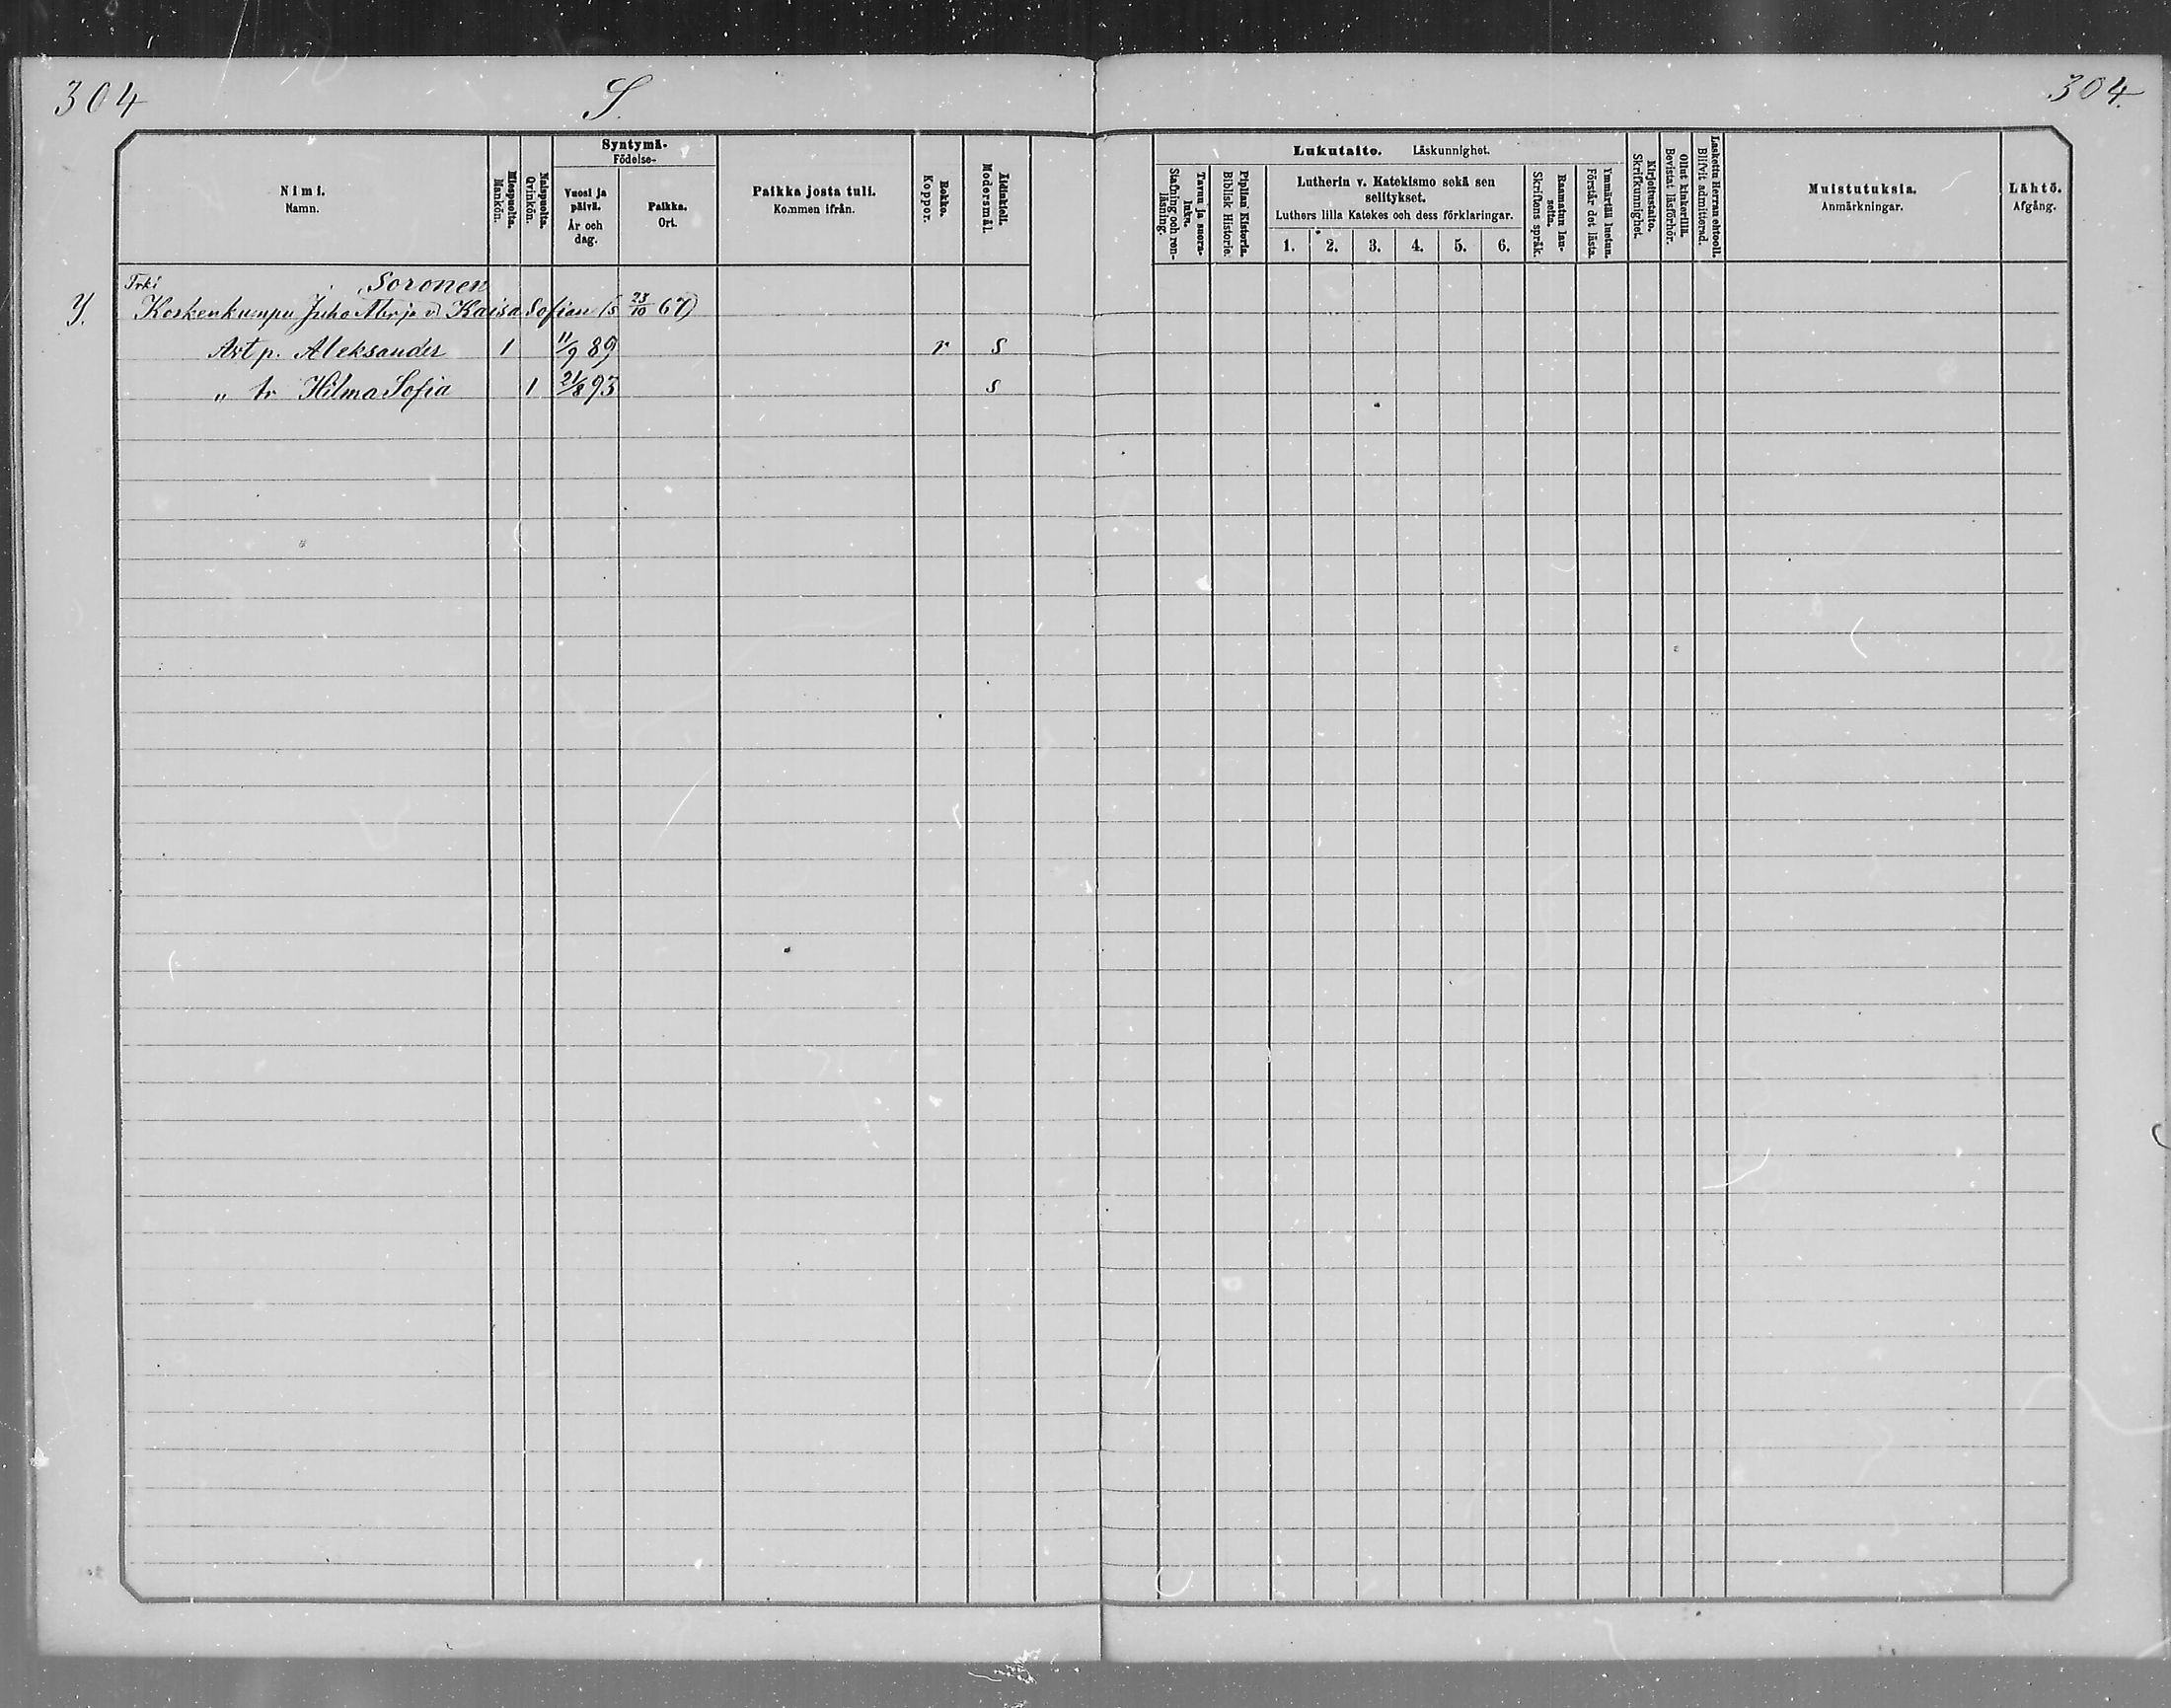 304
S.
304.
Nimi.
Namn.
Miespuolta.
Mankön.
Naispuolta.
Qvinkön.
Syntymä-
Födelse-
Vuosi ja päivä.
År och dag.
Paikka.
Ort.
Paikka josta tuli.
Kommen ifrån.
Rokko.
Koppor.
Äidinkieli.
Modersmål.
Lukutaito. Läskunnighet.
Tavuu ja suora- luku.
Stafning och ren- läsning.
Piplian Historia.
Biblisk Historie.
Lutherin v. Katekismo sekä sen
selitykset.
Luthers lilla Katekes och dess förklaringar.
1. 2. 3. 4. 5. 6.
Raamatun lau- seita.
Skriftens språk.
Ymmärtää luetun.
Förstår det lästa.
Kirjoitustaito.
Skrifkunnighet.
Ollut kinkerillä.
Bevistat läsförhör.
Laskettu Herran ehtooll.
Blifvit admitterad.
Muistutuksia.
Anmärkningar.
Lähtö.
Afgång.
Trki Soronen
Y. Koskenkumpu Juho Abr ja v) Kaisa Sofian (s 23/10 67)
Avt p. Aleksander 1 11/9 89 r s
" tr Hilma Sofia 1 21/8 93 s